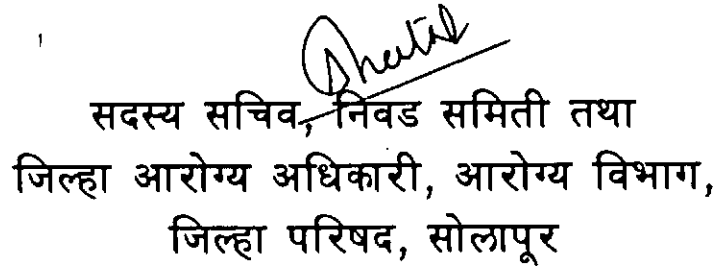 सदस्य सचिव, निवड समिती तथा
जिल्हा आरोग्य अधिकारी, आरोग्य विभाग,
जिल्हा परिषद, सोलापूर